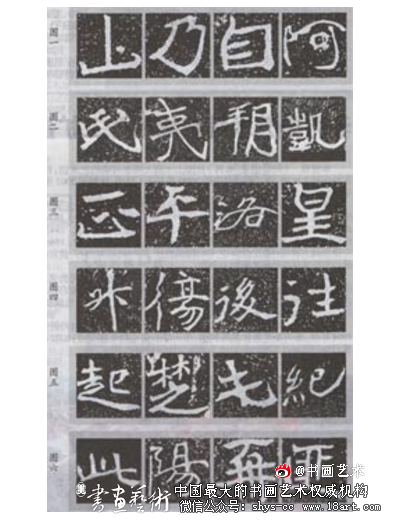 图一 山 乃 自 阿
图二 民 夷 凱
图三 正 平 洛
图四 傷 後 往
图五 起 楚 紀
图六 此 陽
@书画艺术
美 書畫藝術 中国最大的书画艺术权威机构
微信公众号：shys-cc www.18art.com